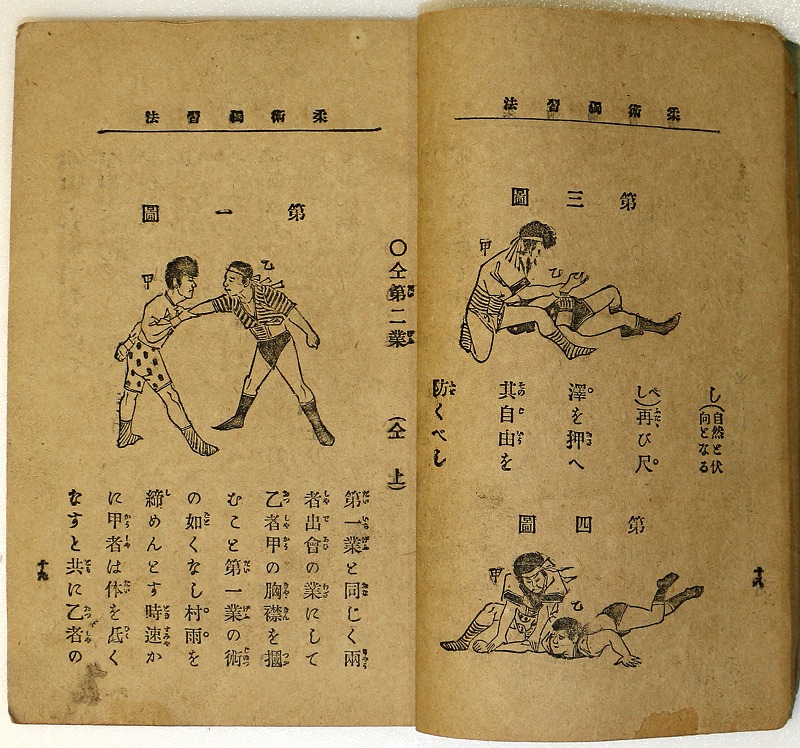 柔術獨習法
第三圖
甲
乙
し(自然と伏
向となる
し)再び尺
澤を押へ
其自由を
防くべし
第四圖
甲
乙
十八
柔術獨習法
〇仝第二業 (仝上)
第一圖
乙
甲
第一業と同じく兩
者出會の業にして
乙者甲の胸襟を摑
むこと第一業の術
の如くなし村雨を
締めんとす時速か
に甲者は体を低く
なすと共に乙者の
十九